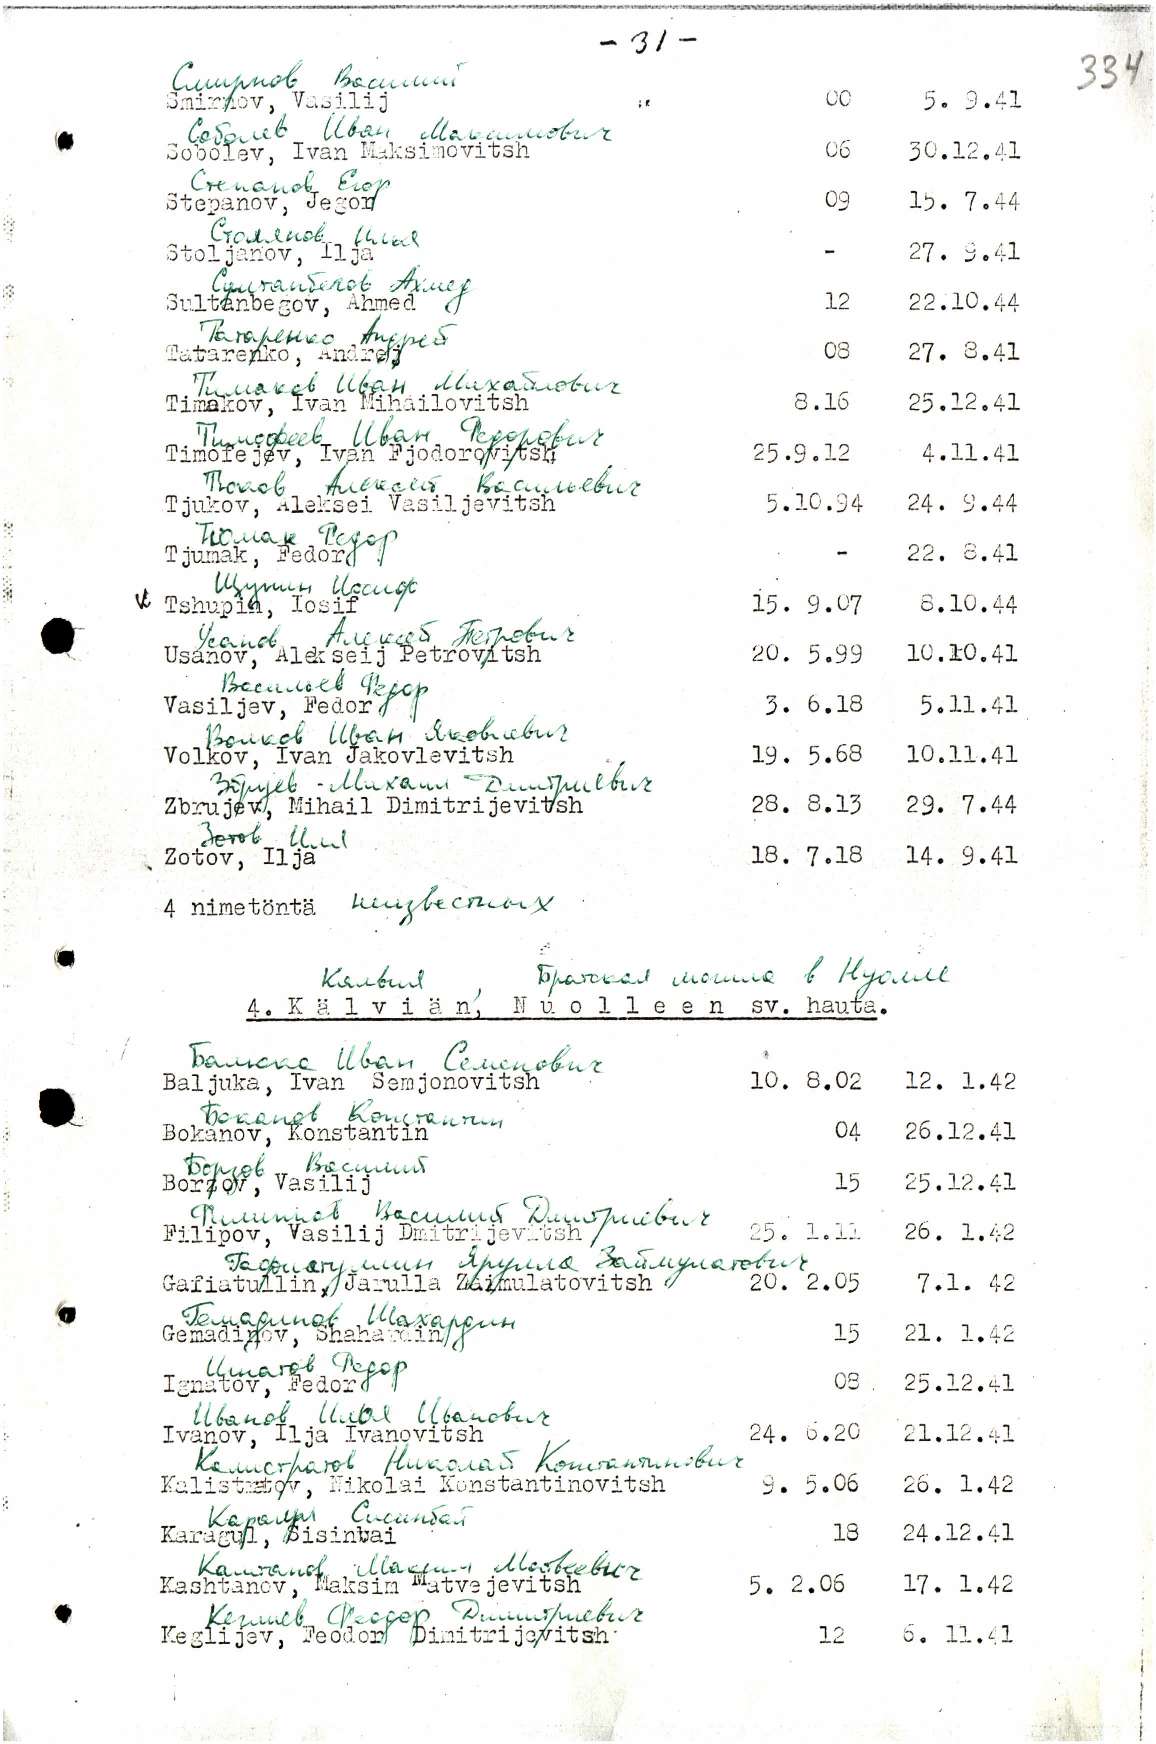 - 31 -
334
Смирнов Василий
Smirnov, Vasilij 00 5. 9.41
Соболев Иван Максимович
Sobolev, Ivan Maksimovitsh 06 30.12.41
Степанов Егор
Stepanov, Jegor 09 15. 7.44
Столянов Илья
Stoljanov, Ilja - 27. 9.41
Султанбегов Ахмед
Sultanbegov, Ahmed 12 22.10.44
Татаренко Андрей
Tatarenko, Andrej 08 27. 8.41
Тимаков Иван Михайлович
Timakov, Ivan Mihailovitsh 8.16 25.12.41
Тимофеев Иван Федорович
Timofejev, Ivan Fjodorovitsh 25.9.12 4.11.41
Тюков Алексей Васильевич
Tjukov, Aleksei Vasiljevitsh 5.10.94 24. 9.44
Тюмак Федор
Tjumak, Fedor - 22. 8.41
Щупин Иосиф
Tshupin, Iosif 15. 9.07 8.10.44
Усанов Алексей Петрович
Usanov, Alekseij Petrovitsh 20. 5.99 10.10.41
Васильев Федор
Vasiljev, Fedor 3. 6.18 5.11.41
Волков Иван Яковлевич
Volkov, Ivan Jakovlevitsh 19. 5.68 10.11.41
Збруев Михаил Димитриевич
Zbrujev, Mihail Dimitrijevitsh 28. 8.13 29. 7.44
Зотов Илья
Zotov, Ilja 18. 7.18 14. 9.41
4 nimetöntä неизвестных
Кяльвия, Братская могила в Нуолле
4. Kälviän, Nuolleen sv. hauta.
Балюка Иван Семенович
Baljuka, Ivan Semjonovitsh 10. 8.02 12. 1.42
Боканов Константин
Bokanov, Konstantin 04 26.12.41
Борзов Василий
Borzov, Vasilij 15 25.12.41
Филиппов Василий Дмитриевич
Filipov, Vasilij Dmitrijevitsh 25. 1.11 26. 1.42
Гафиатуллин Ярулла Займулатович
Gafiatullin, Jarulla Zaimulatovitsh 20. 2.05 7.1. 42
Гемадинов Шахардин
Gemadinov, Shahardin 15 21. 1.42
Игнатов Федор
Ignatov, Fedor 08 25.12.41
Иванов Илья Иванович
Ivanov, Ilja Ivanovitsh 24. 6.20 21.12.41
Калистратов Николай Константинович
Kalistratov, Nikolai Konstantinovitsh 9. 5.06 26. 1.42
Карагул Сисинбай
Karagul, Sisinbai 18 24.12.41
Каштанов Максим Матвеевич
Kashtanov, Maksim Matvejevitsh 5. 2.06 17. 1.42
Кеглиев Феодор Димитриевич
Keglijev, Feodor Dimitrijevitsh 12 6. 11.41